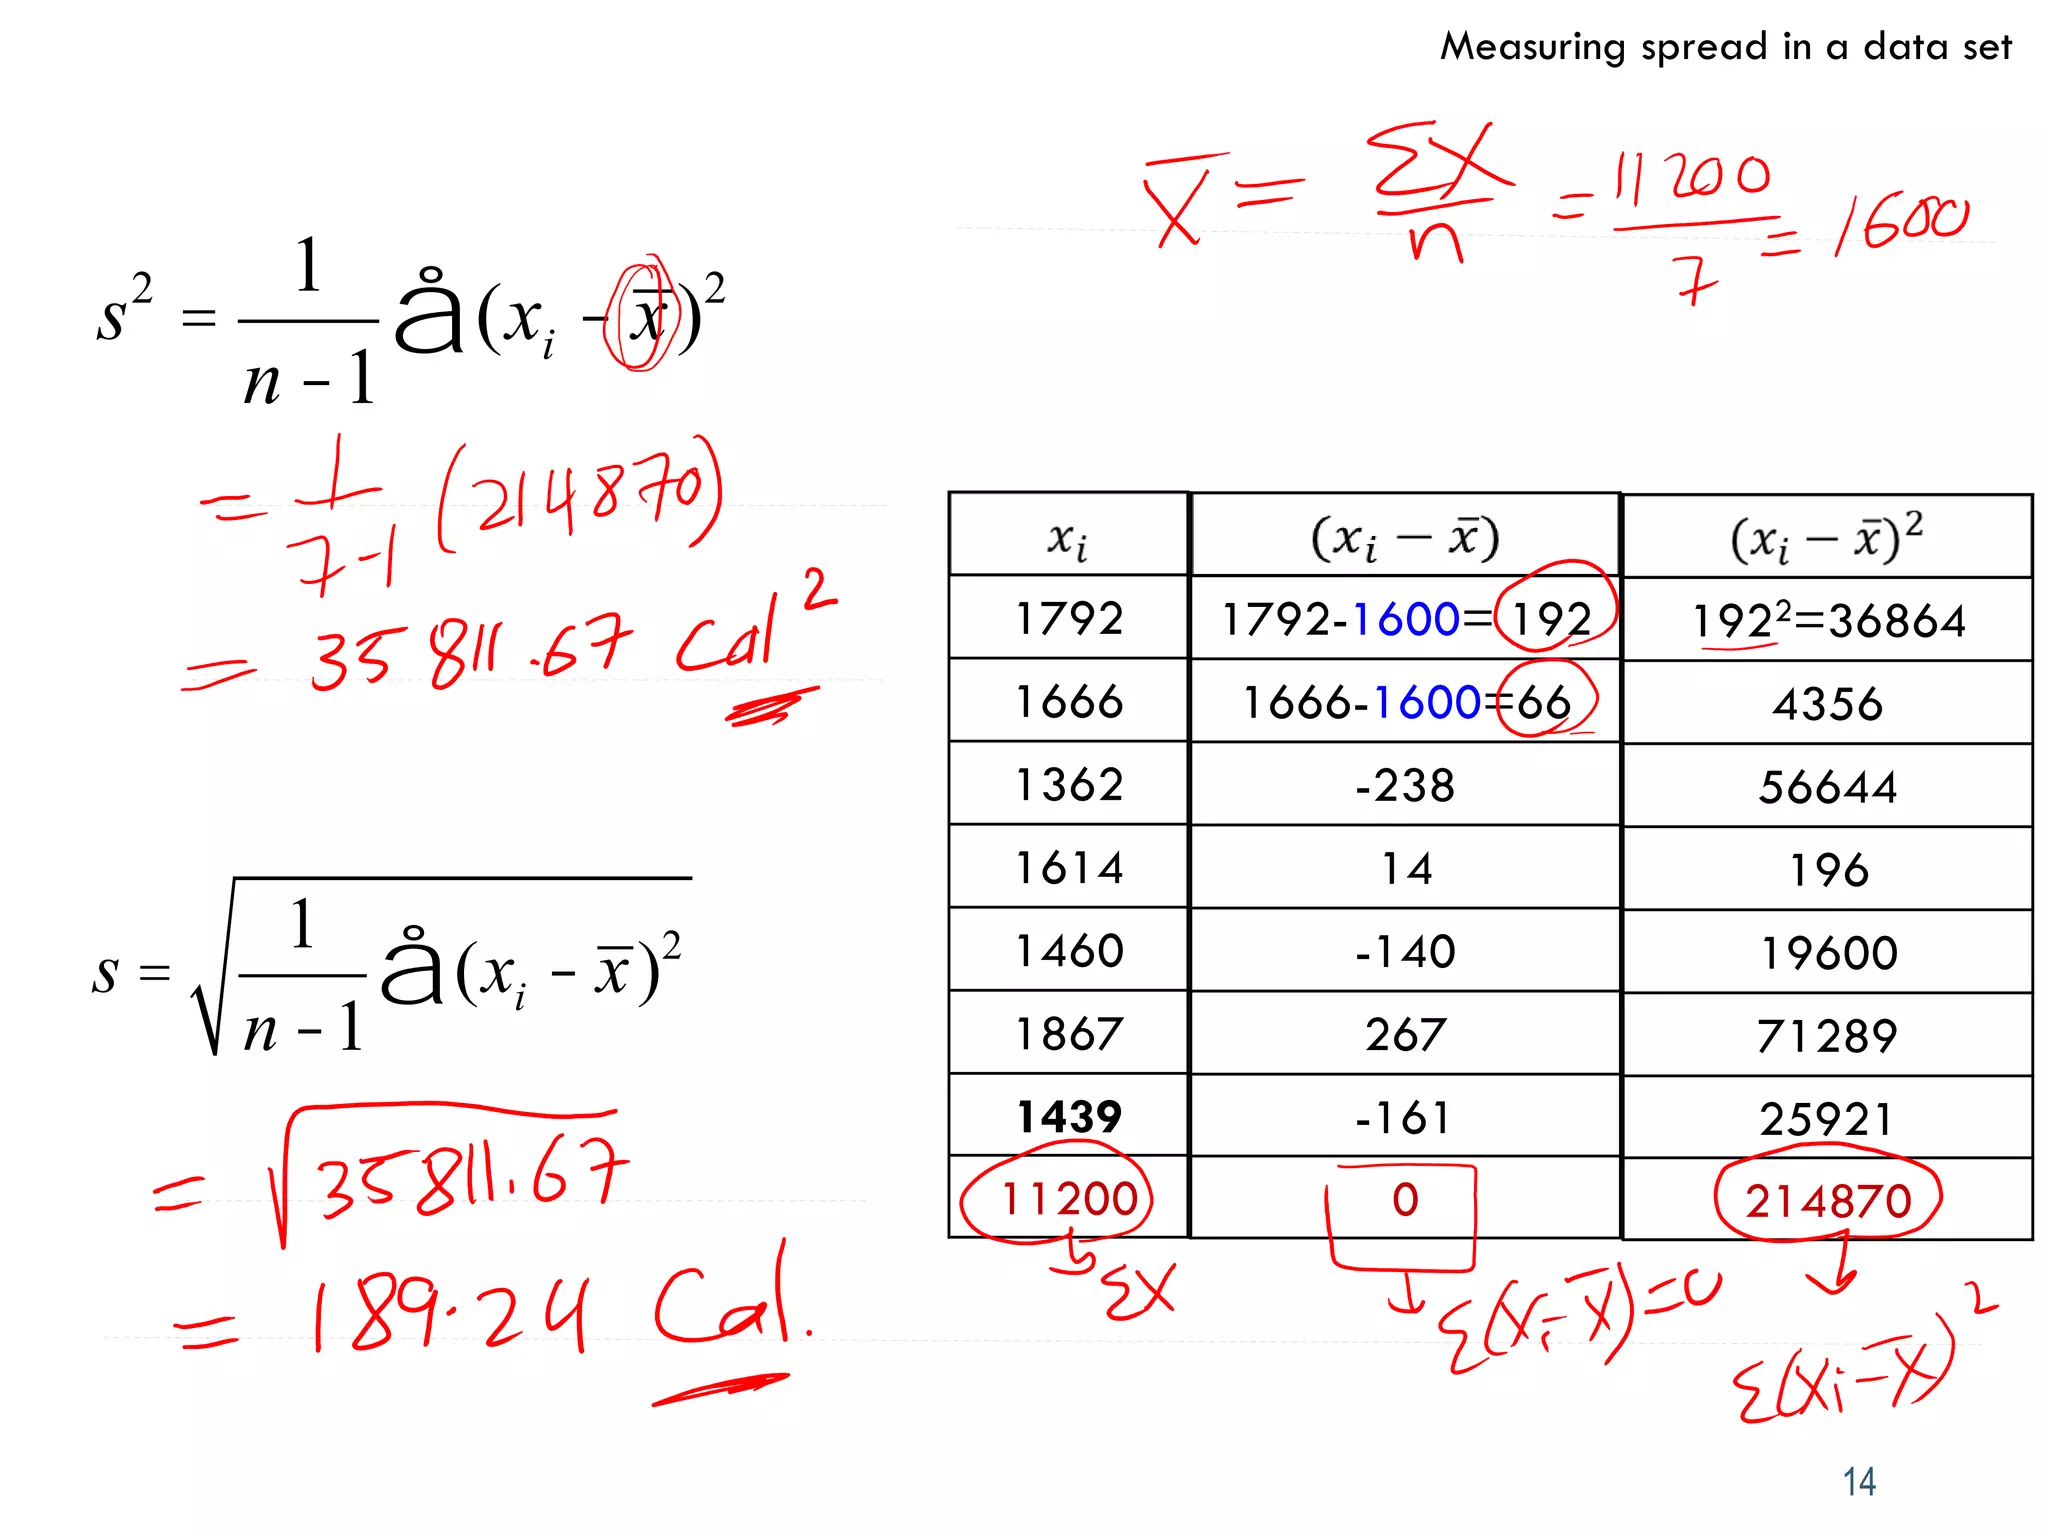 Measuring spread in a data set
X̄ = ΣX/n = 11200/7 = 1600
s² = 1/(n-1) å(xᵢ - x̄)²
= 1/(7-1) (214870)
= 35811.67 Cal²
s = √(1/(n-1) å(xᵢ - x̄)²)
= √35811.67
= 189.24 Cal.
xᵢ (xᵢ − x̄) (xᵢ − x̄)²
1792 1792-1600= 192 192²=36864
1666 1666-1600=66 4356
1362 -238 56644
1614 14 196
1460 -140 19600
1867 267 71289
1439 -161 25921
11200 0 214870
→ ΣX
↓ Σ(Xᵢ-X̄)=0
↓ Σ(Xi-X̄)²
14